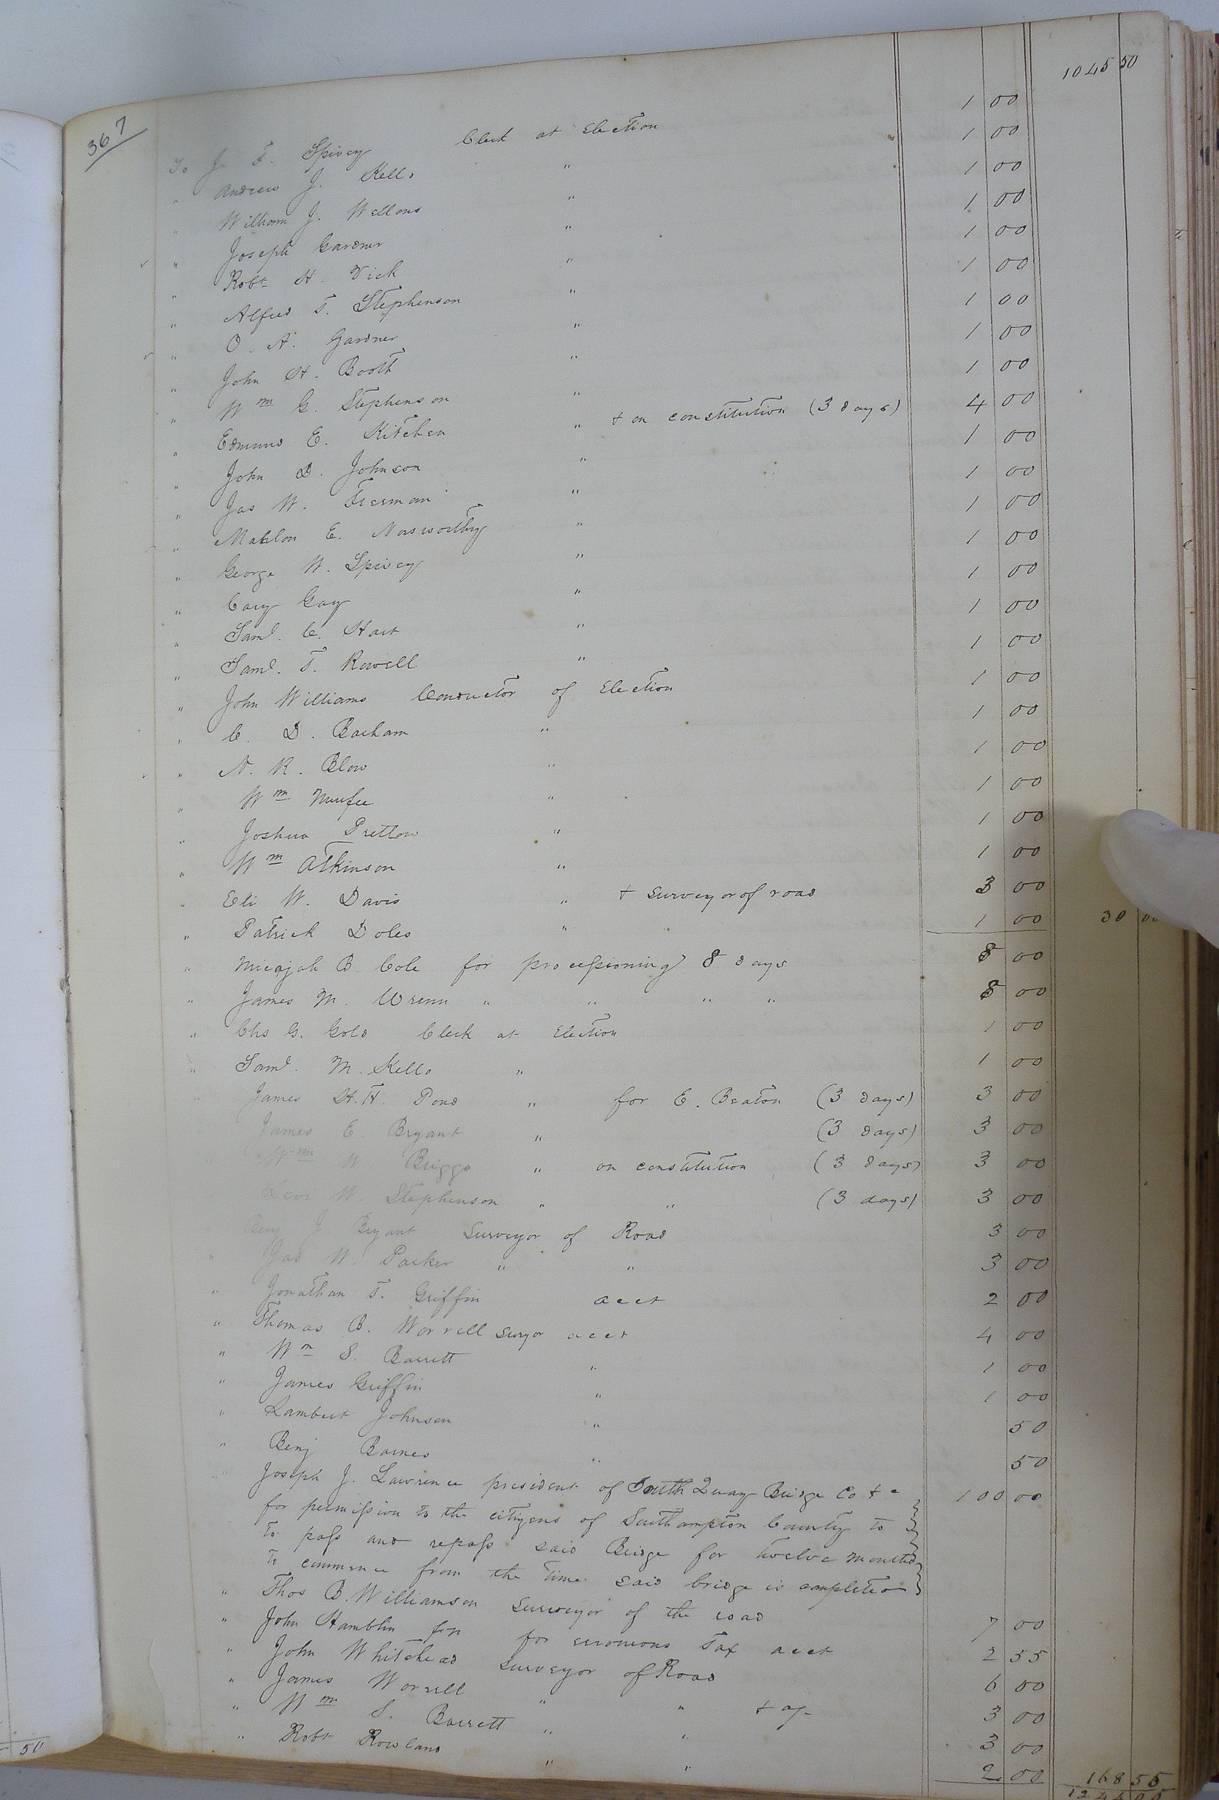 367
1045 50
To J. T. Spivey Clerk at Election 1 00
" Andrew J. Kello " 1 00
" William J. Wellons " 1 00
" Joseph Gardner " 1 00
" Robt H. Vick " 1 00
" Alfred T. Stephenson " 1 00
" O. A. Gardner " 1 00
" John H. Booth " 1 00
" Wm G. Stephenson " 1 00
" Edmund E. Kitchen " + on constitution (3 days) 4 00
" John D. Johnson " 1 00
" Jas W. Freeman " 1 00
" Mahlon E. Norsworthy " 1 00
" George W. Spivey " 1 00
" Cary Gay " 1 00
" Saml. C. Hart " 1 00
" Saml. T. Rowell " 1 00
" John Williams Conductor of Election 1 00
" C. D. Barham " 1 00
" N. R. Blow " 1 00
" Wm Murfee " 1 00
" Joshua Pretlow " 1 00
" Wm Atkinson " 1 00
" Eli W. Davis " + surveyor of road 3 00
" Patrick Doles " 1 00 30 00
" Micajah B. Cole for processioning 8 days 8 00
" James M. Wrenn " " " " 8 00
" Chs G. Gold Clerk at Election 1 00
" Saml. M. Kello " 1 00
" James H. H. Pond " for E. Beaton (3 days) 3 00
James E. Bryant " (3 days) 3 00
Wm W. Briggs " on constitution (3 days) 3 00
Levi W. Stephenson " " (3 days) 3 00
Benj J. Bryant Surveyor of Road 3 00
" Jas W. Parker " " 3 00
" Jonathan T. Griffin acct 2 00
" Thomas B. Worrell survyor acct 4 00
" Wm S. Barrett " 1 00
" James Griffin " 1 00
" Lambert Johnson " 50
" Benj Barnes " 50
" Joseph J. Lawrence president of South Quay Bridge Co +c 100 00
for permission to the citizens of Southampton County to
to pass and repass said Bridge for twelve months
to commence from the time said bridge is completed
" Thos B. Williamson Surveyor of the road 7 00
" John Hamblin for for erronious Tax acct 2 55
" John Whitehead surveyor of Road 6 00
" James Worrell " " + 3 00
" Wm S. Barrett " " 3 00
" Robt Rowland " " 2 00 168 55
50